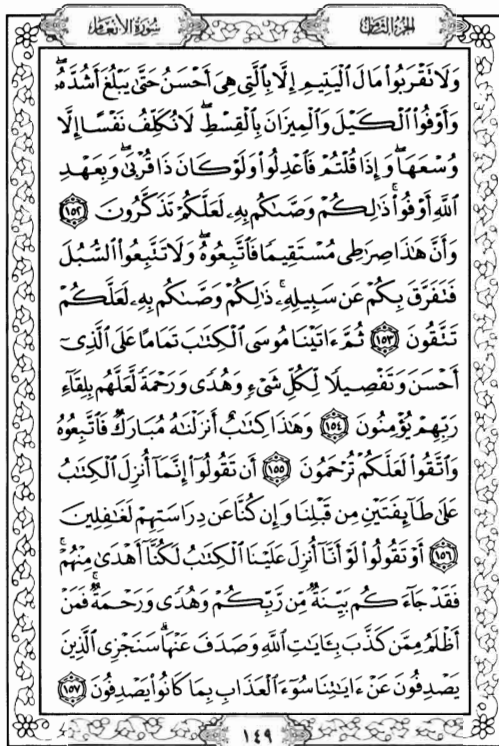 الجزء الثامن سورة الأنعام
وَلَا تَقْرَبُوا۟ مَالَ ٱلْيَتِيمِ إِلَّا بِٱلَّتِى هِىَ أَحْسَنُ حَتَّىٰ يَبْلُغَ أَشُدَّهُۥۖ
وَأَوْفُوا۟ ٱلْكَيْلَ وَٱلْمِيزَانَ بِٱلْقِسْطِۖ لَا نُكَلِّفُ نَفْسًا إِلَّا
وُسْعَهَاۖ وَإِذَا قُلْتُمْ فَٱعْدِلُوا۟ وَلَوْ كَانَ ذَا قُرْبَىٰۖ وَبِعَهْدِ
ٱللَّهِ أَوْفُوا۟ۚ ذَٰلِكُمْ وَصَّىٰكُم بِهِۦ لَعَلَّكُمْ تَذَكَّرُونَ ١٥٢
وَأَنَّ هَٰذَا صِرَٰطِى مُسْتَقِيمًا فَٱتَّبِعُوهُۖ وَلَا تَتَّبِعُوا۟ ٱلسُّبُلَ
فَتَفَرَّقَ بِكُمْ عَن سَبِيلِهِۦۚ ذَٰلِكُمْ وَصَّىٰكُم بِهِۦ لَعَلَّكُمْ
تَتَّقُونَ ١٥٣ ثُمَّ ءَاتَيْنَا مُوسَى ٱلْكِتَٰبَ تَمَامًا عَلَى ٱلَّذِىٓ
أَحْسَنَ وَتَفْصِيلًا لِّكُلِّ شَىْءٍ وَهُدًى وَرَحْمَةً لَّعَلَّهُم بِلِقَآءِ
رَبِّهِمْ يُؤْمِنُونَ ١٥٤ وَهَٰذَا كِتَٰبٌ أَنزَلْنَٰهُ مُبَارَكٌ فَٱتَّبِعُوهُ
وَٱتَّقُوا۟ لَعَلَّكُمْ تُرْحَمُونَ ١٥٥ أَن تَقُولُوٓا۟ إِنَّمَآ أُنزِلَ ٱلْكِتَٰبُ
عَلَىٰ طَآئِفَتَيْنِ مِن قَبْلِنَا وَإِن كُنَّا عَن دِرَاسَتِهِمْ لَغَٰفِلِينَ
١٥٦ أَوْ تَقُولُوا۟ لَوْ أَنَّآ أُنزِلَ عَلَيْنَا ٱلْكِتَٰبُ لَكُنَّآ أَهْدَىٰ مِنْهُمْۚ
فَقَدْ جَآءَكُم بَيِّنَةٌ مِّن رَّبِّكُمْ وَهُدًى وَرَحْمَةٌۚ فَمَنْ
أَظْلَمُ مِمَّن كَذَّبَ بِـَٔايَٰتِ ٱللَّهِ وَصَدَفَ عَنْهَاۗ سَنَجْزِى ٱلَّذِينَ
يَصْدِفُونَ عَنْ ءَايَٰتِنَا سُوٓءَ ٱلْعَذَابِ بِمَا كَانُوا۟ يَصْدِفُونَ ١٥٧
١٤٩